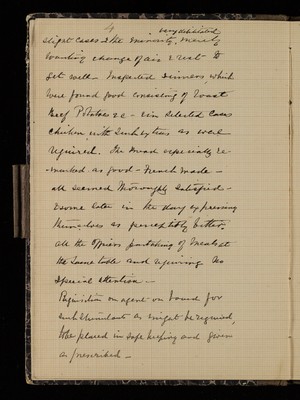 4
very debilitated
slight cases & the minority, merely
wanting change of air & rest to
get well - Inspected dinners, which
were found good consisting of roast
Beef Potatoes &c - in selected cases
chicken, with such extras as were
required. The bread especially re-
marked as good - French made -
all seemed thoroughly satisfied -
& some later in the day expressing
themselves as perceptibly better,
all the officers partaking of meals at
the same table and requiring no
special attention -
Requisition on agent on board for
such stimulants as might be required,
to be placed in safe keeping and given
as prescribed -